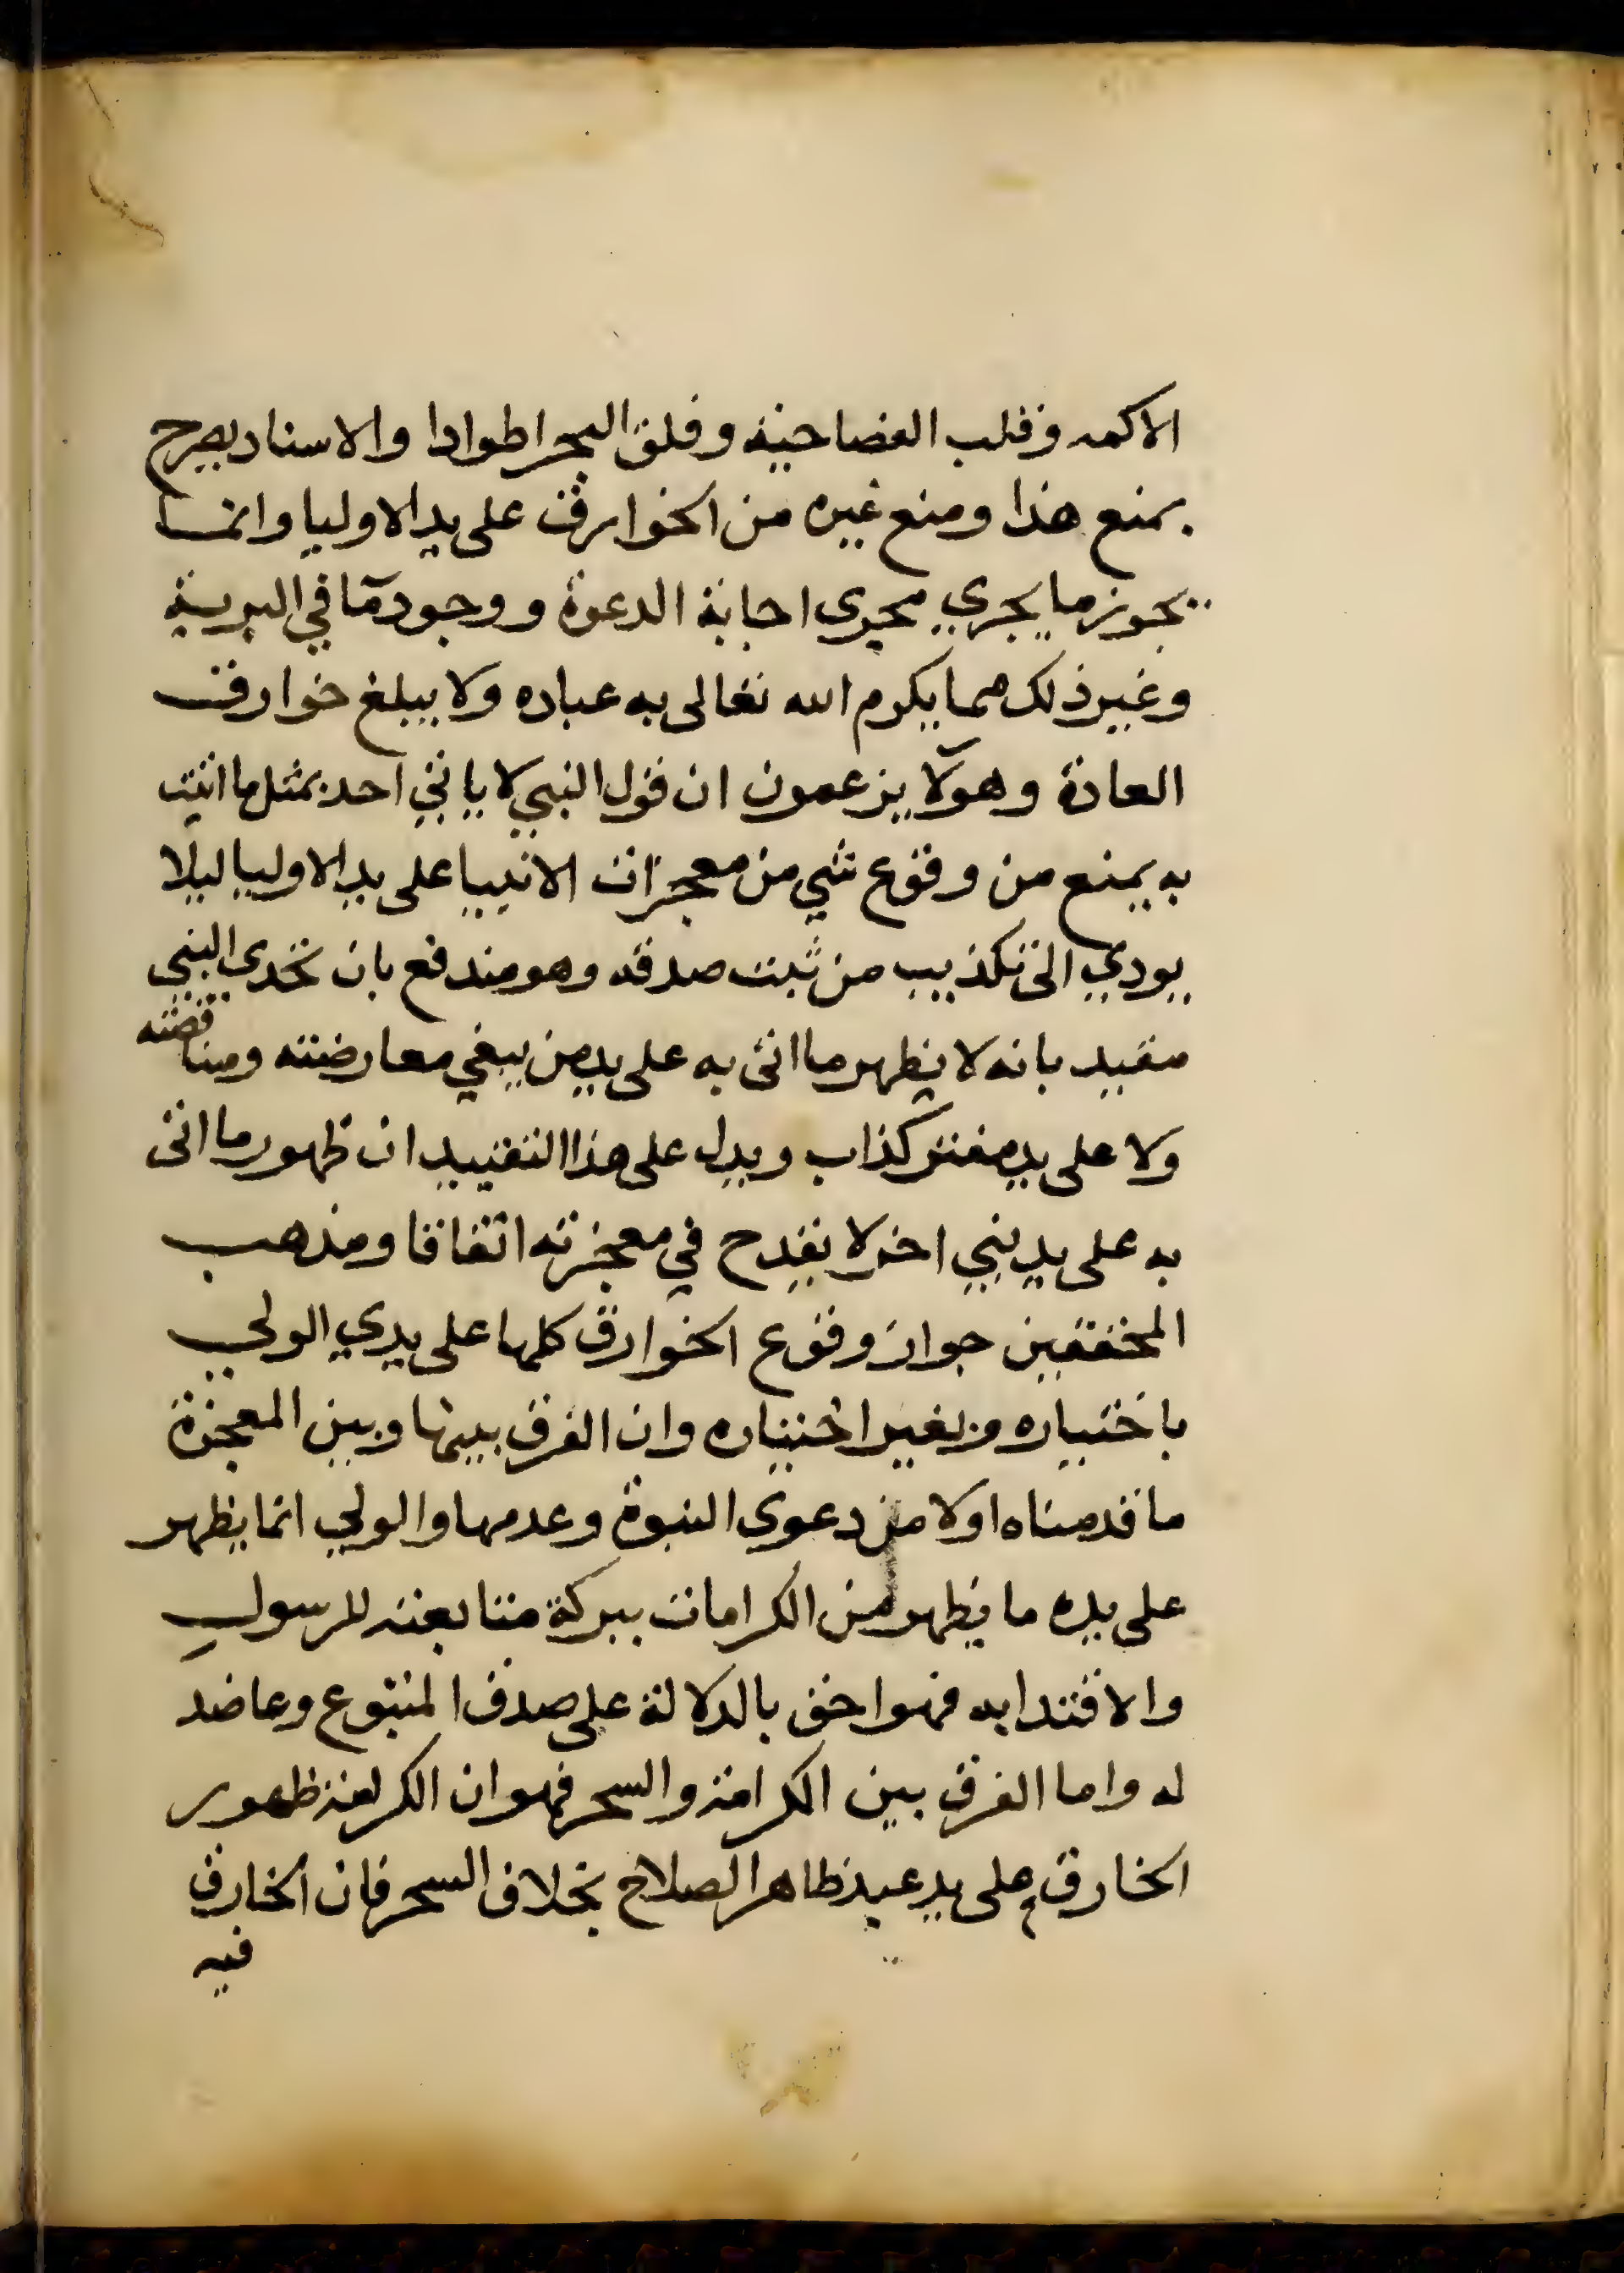 الاكمه وقلب العصا حية وفلق البحر اطوادا والاستاد يصرح
بمنع هذا ومنع غيره من الخوارق على يد الاوليا وانما
يجوز ما يجري مجرى اجابة الدعوة ووجود مآ في البرية
وغير ذلك مما يكرم الله تعالى به عباده ولا يبلغ خوارق
العادة وهولآ يزعمون ان قول النبي لا ياتي احد بمثل ما اتيت
به يمنع من وقوع شي من معجزات الانبيا على يد الاوليا ليلا
يودي الى تكذيب من ثبت صدقه وهو مندفع بان تحدي النبي
مقيد بانه لا يظهر ما اتى به على يد من يبغي معارضته ومناقضته
ولا على يد مفتر كذاب ويدل على هذا التقييد ان ظهور ما اتى
به على يد نبي اخر لا يقدح في معجزته اتفاقا ومذهب
المحققين جواز وقوع الخوارق كلها على يدي الولي
باختياره وبغير اختياره وان الفرق بينها وبين المعجزة
ما قدمناه اولا من دعوى النبوة وعدمها والولي انما يظهر
على يده ما يظهر من الكرامات ببركة متابعته للرسول
والاقتدا به فهو احق بالدلالة على صدق المتبوع وعاضد
له واما الفرق بين الكرامة والسحر فهو ان الكرامة ظهور
الخارق على يد عبد ظاهر الصلاح بخلاف السحر فان الخارق
فيه